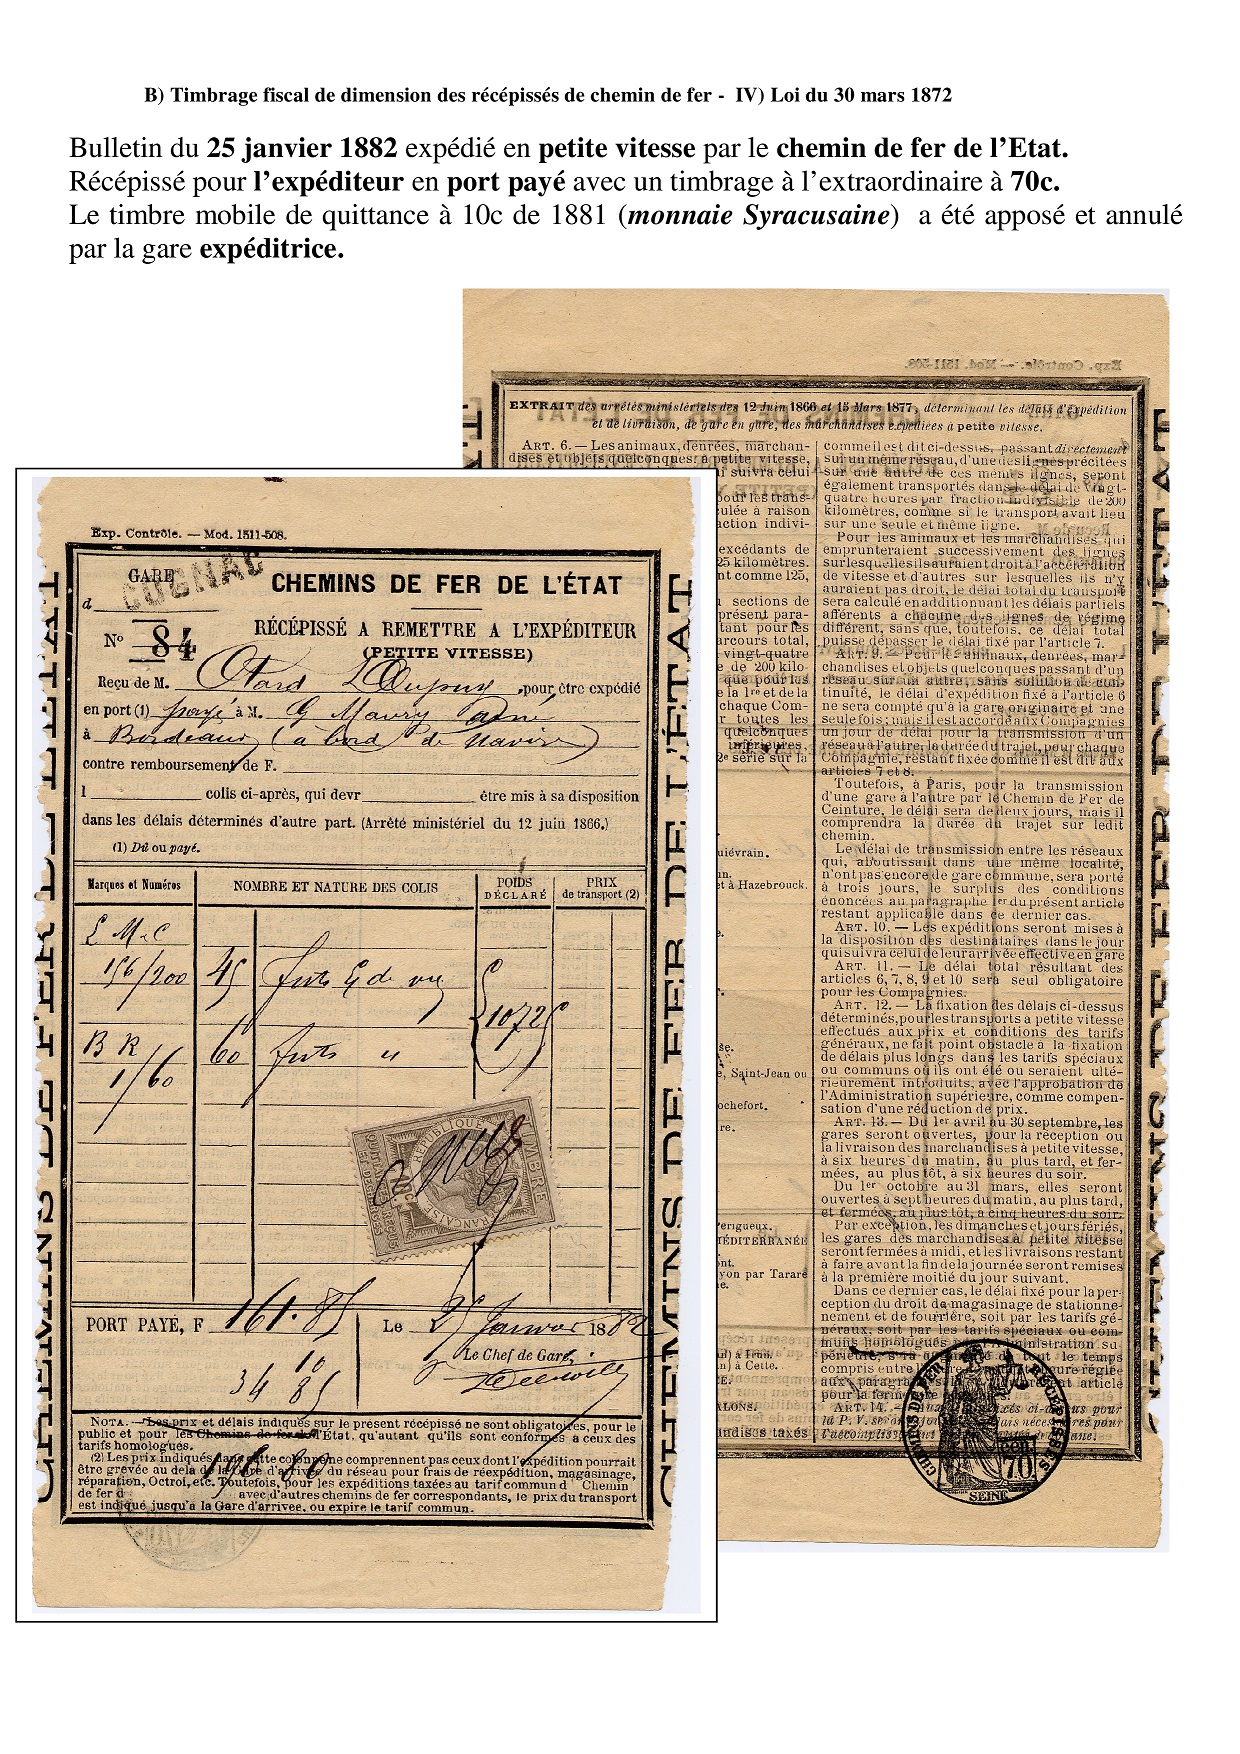 B) Timbrage fiscal de dimension des récépissés de chemin de fer - IV) Loi du 30 mars 1872
Bulletin du 25 janvier 1882 expédié en petite vitesse par le chemin de fer de l'Etat.
Récépissé pour l'expéditeur en port payé avec un timbrage à l'extraordinaire à 70c.
Le timbre mobile de quittance à 10c de 1881 (monnaie Syracusaine) a été apposé et annulé
par la gare expéditrice.
Exp. Contrôle. — Mod. 1511-508.
GARE
COGNAC
d
CHEMINS DE FER DE L'ÉTAT
N° 84
RÉCÉPISSÉ A REMETTRE A L'EXPÉDITEUR
(PETITE VITESSE)
Reçu de M. Otard Dupuy, pour être expédié
en port (1) payé à M. G Maury aîné
à Bordeaux (à bord de navire)
contre remboursement de F.
l colis ci-après, qui devr être mis à sa disposition
dans les délais déterminés d'autre part. (Arrêté ministériel du 12 juin 1866.)
(1) Dû ou payé.
Marques et Numéros
NOMBRE ET NATURE DES COLIS
POIDS DÉCLARÉ
PRIX de transport (2)
156/200 45 futs
B R 60 futs "
1/60
TIMBRE
RÉPUBLIQUE FRANÇAISE
PORT PAYÉ, F 161.85
Le 25 Janvier 1882
Le Chef de Gare,
10
34 85
196 80
NOTA. — Les prix et délais indiqués sur le présent récépissé ne sont obligatoires, pour le
public et pour les Chemins de fer de l'État, qu'autant qu'ils sont conformes a ceux des
tarifs homologués.
(2) Les prix indiqués dans cette colonne ne comprennent pas ceux dont l'expédition pourrait
être grevée au dela de la Gare d'arrivée du réseau pour frais de réexpédition, magasinage,
réparation, Octroi, etc. Toutefois, pour les expéditions taxées au tarif commun d Chemin
de fer d avec d'autres chemins de fer correspondants, le prix du transport
est indiqué jusqu'à la Gare d'arrivée, ou expire le tarif commun.
CHEMINS DE FER DE L'ÉTAT
EXTRAIT des arrêtés ministériels des 12 Juin 1866 et 15 Mars 1877, déterminant les délais d'expédition
et de livraison, de gare en gare, des marchandises expédiées à petite vitesse.
ART. 6. — Les animaux, denrées, marchan-
dises et objets quelconques à petite vitesse,
suivra celui
pour les trans-
culée à raison
action indivi-
excédants de
25 kilomètres.
nt comme 125,
sections de
présent para-
tant pour les
arcours total,
vingt-quatre
e de 200 kilo-
que pour les
e la 1re et de la
chaque Com-
r toutes les
quelconques
inférieures.
2e série sur la
uiévrain.
t à Hazebrouck.
, Saint-Jean ou
ochefort.
Périgueux.
MÉDITERRANÉE
yon par Tarare
) à Cette.
ndises taxés
comme il est dit ci-dessus, passant directement
sur un même réseau, d'une des lignes précitées
sur une autre de ces mêmes lignes, seront
également transportés dans le délai de vingt-
quatre heures par fraction indivisible de 200
kilomètres, comme si le transport avait lieu
sur une seule et même ligne.
Pour les animaux et les marchandises qui
emprunteraient successivement des lignes
sur lesquelles ils auraient droit à l'accélération
de vitesse et d'autres sur lesquelles ils n'y
auraient pas droit, le délai total du transport
sera calculé en additionnant les délais partiels
afférents à chacune des lignes de régime
différent, sans que, toutefois, ce délai total
puisse dépasser le délai fixé par l'article 7.
ART. 9. — Pour les animaux, denrées, mar-
chandises et objets quelconques passant d'un
réseau sur un autre, sans solution de con-
tinuité, le délai d'expédition fixé à l'article 6
ne sera compté qu'à la gare originaire et une
seule fois; mais il est accordé aux Compagnies
un jour de délai pour la transmission d'un
réseau à l'autre, la durée du trajet, pour chaque
Compagnie, restant fixée comme il est dit aux
articles 7 et 8.
Toutefois, à Paris, pour la transmission
d'une gare à l'autre par le Chemin de Fer de
Ceinture, le délai sera de deux jours, mais il
comprendra la durée du trajet sur ledit
chemin.
Le délai de transmission entre les réseaux
qui, aboutissant dans une même localité,
n'ont pas encore de gare commune, sera porté
à trois jours, le surplus des conditions
énoncées au paragraphe 1er du présent article
restant applicable dans ce dernier cas.
ART. 10. — Les expéditions seront mises à
la disposition des destinataires dans le jour
qui suivra celui de leur arrivée effective en gare
ART. 11. — Le délai total résultant des
articles 6, 7, 8, 9 et 10 sera seul obligatoire
pour les Compagnies.
ART. 12. — La fixation des délais ci-dessus
déterminés, pour les transports a petite vitesse
effectués aux prix et conditions des tarifs
généraux, ne fait point obstacle à la fixation
de délais plus longs dans les tarifs spéciaux
ou communs où ils ont été ou seraient ulté-
rieurement introduits, avec l'approbation de
l'Administration supérieure, comme compen-
sation d'une réduction de prix.
ART. 13. — Du 1er avril au 30 septembre, les
gares seront ouvertes, pour la réception ou
la livraison des marchandises à petite vitesse,
à six heures du matin, au plus tard, et fer-
mées, au plus tôt, à six heures du soir.
Du 1er octobre au 31 mars, elles seront
ouvertes à sept heures du matin, au plus tard,
et fermées, au plus tôt, à cinq heures du soir.
Par exception, les dimanches et jours fériés,
les gares des marchandises à petite vitesse
seront fermées à midi, et les livraisons restant
à faire avant la fin de la journée seront remises
à la première moitié du jour suivant.
Dans ce dernier cas, le délai fixé pour la per-
ception du droit de magasinage de stationne-
nement et de fourrière, soit par les tarifs gé-
néraux, soit par les tarifs spéciaux ou com-
muns homologués par l'Administration su
périeure, sera augmenté de tout le temps
compris entre l'heure
ART. 14.
CHEMINS DE FER
70
SEINE